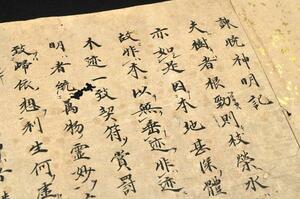 諫曉神明記
夫樹者根勁則枝榮水
亦如是因本地甚深體
故非本以無垂迹非迹
本迹一致契符賞罰
明者統萬物靈妙
致歸依想利生何虛